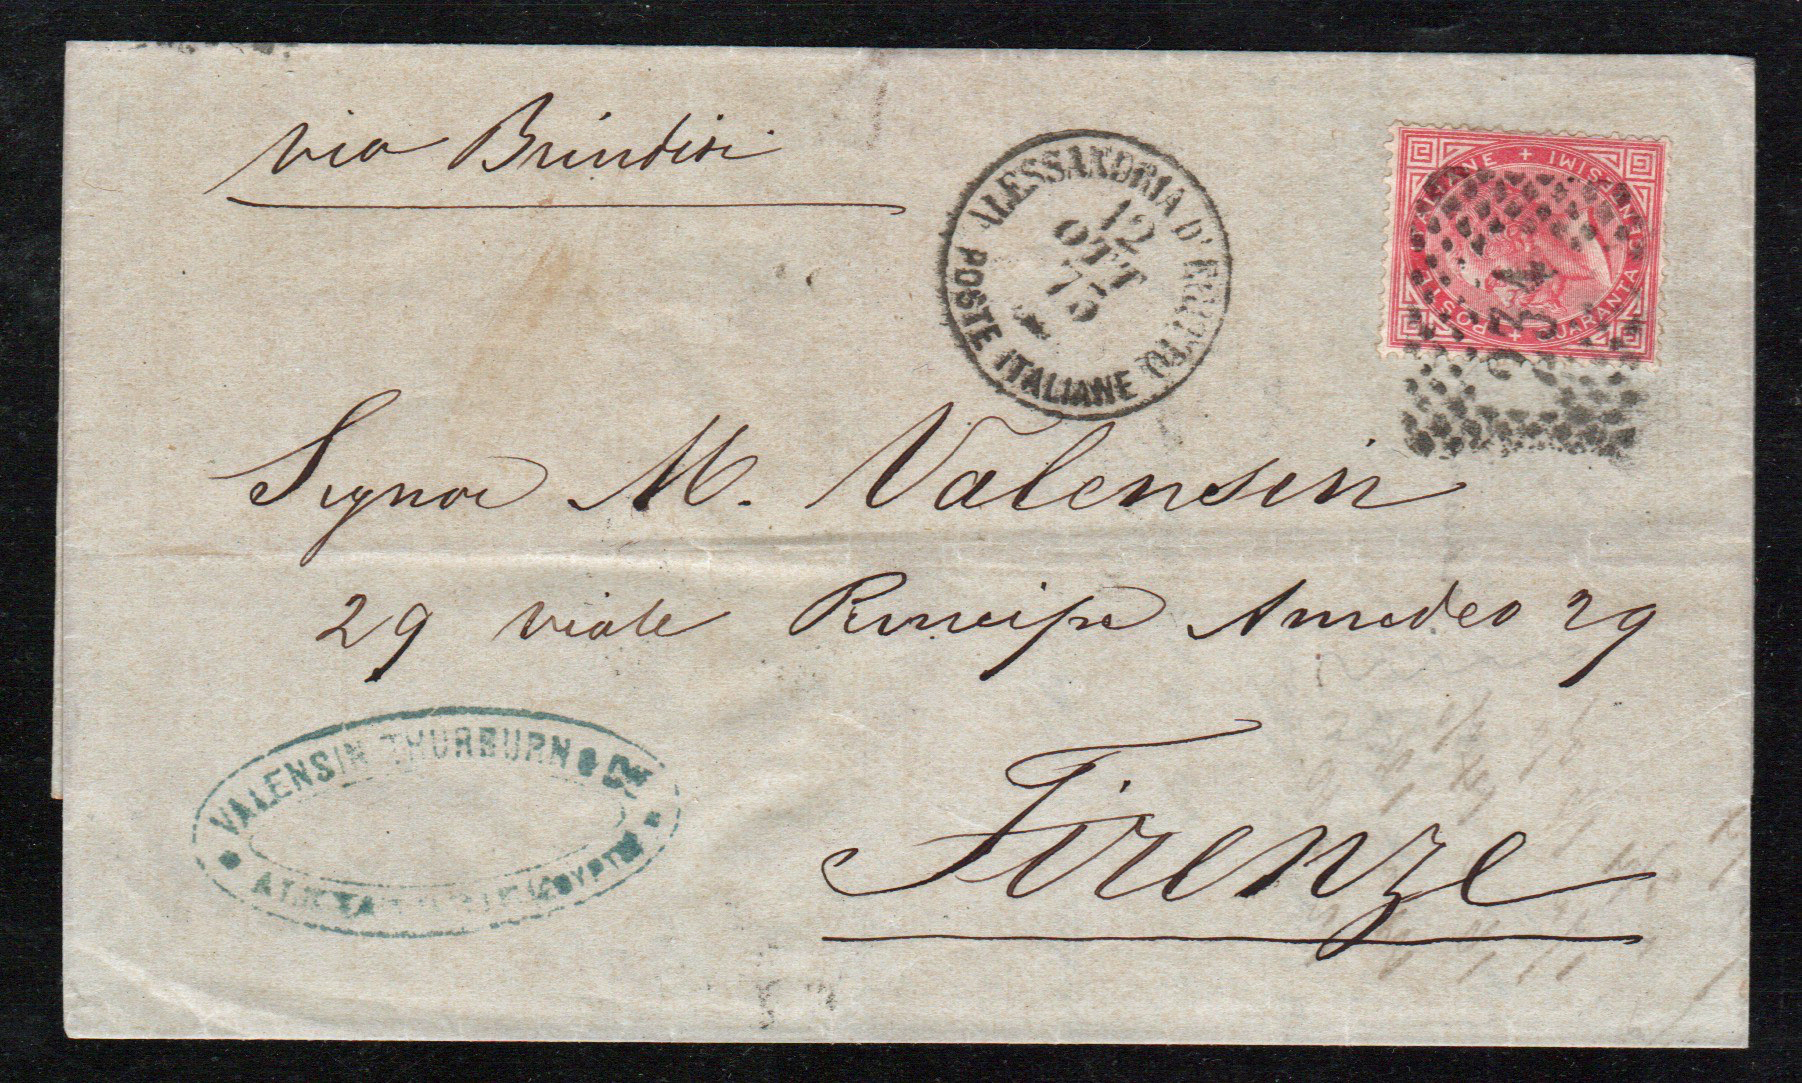 via Brindisi
POSTE ITALIANE
ALESSANDRIA D'EGITTO
12
OTT
75
POSTE ITALIANE + QUARANTA CENTESIMI +
234
Signor M. Valensin
29 viale Principe Amedeo 29
Firenze
VALENSIN THURBURN & Co
ALEXANDRIE (EGYPTE)